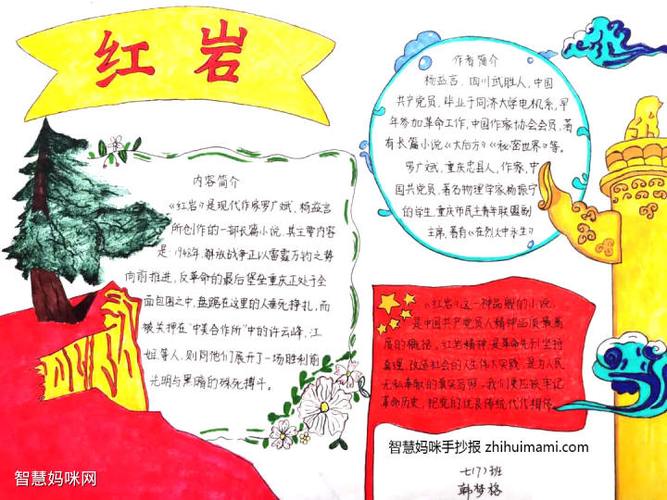 红岩
作者简介
杨益言，四川武胜人，中国
共产党员，毕业于同济大学电机系，早
年参加革命工作，中国作家协会会员，著
有长篇小说《大后方》《秘密世界》等。
罗广斌，重庆忠县人，作家，中
国共产党员，著名物理学家杨振宁
的学生，重庆市民主青年联盟副
主席，著有《在烈火中永生》
内容简介
《红岩》是现代作家罗广斌，杨益言
所创作的一部长篇小说，其主要内容
是：1948年，解放战争正以雷霆万钧之势
向前推进，反革命的最后堡垒重庆正处于全
面包围之中，盘踞在这里的人垂死挣扎，而
被关押在“中美合作所”中的许云峰，江
姐等人，则同他们展开了一场胜利前
光明与黑暗的殊死搏斗。
《红岩》这一种品般的小说，
是中国共产党员人精神品质最高
度的概括，红岩精神是革命先烈坚持
真理，改造社会的人生伟大实践，是为人民
无私奉献的真实写照，我们要应该牢记
革命历史，把党的优良传统代代相传
智慧妈咪手抄报 zhihuimami.com
七(7)班
韩梦格
智慧妈咪网